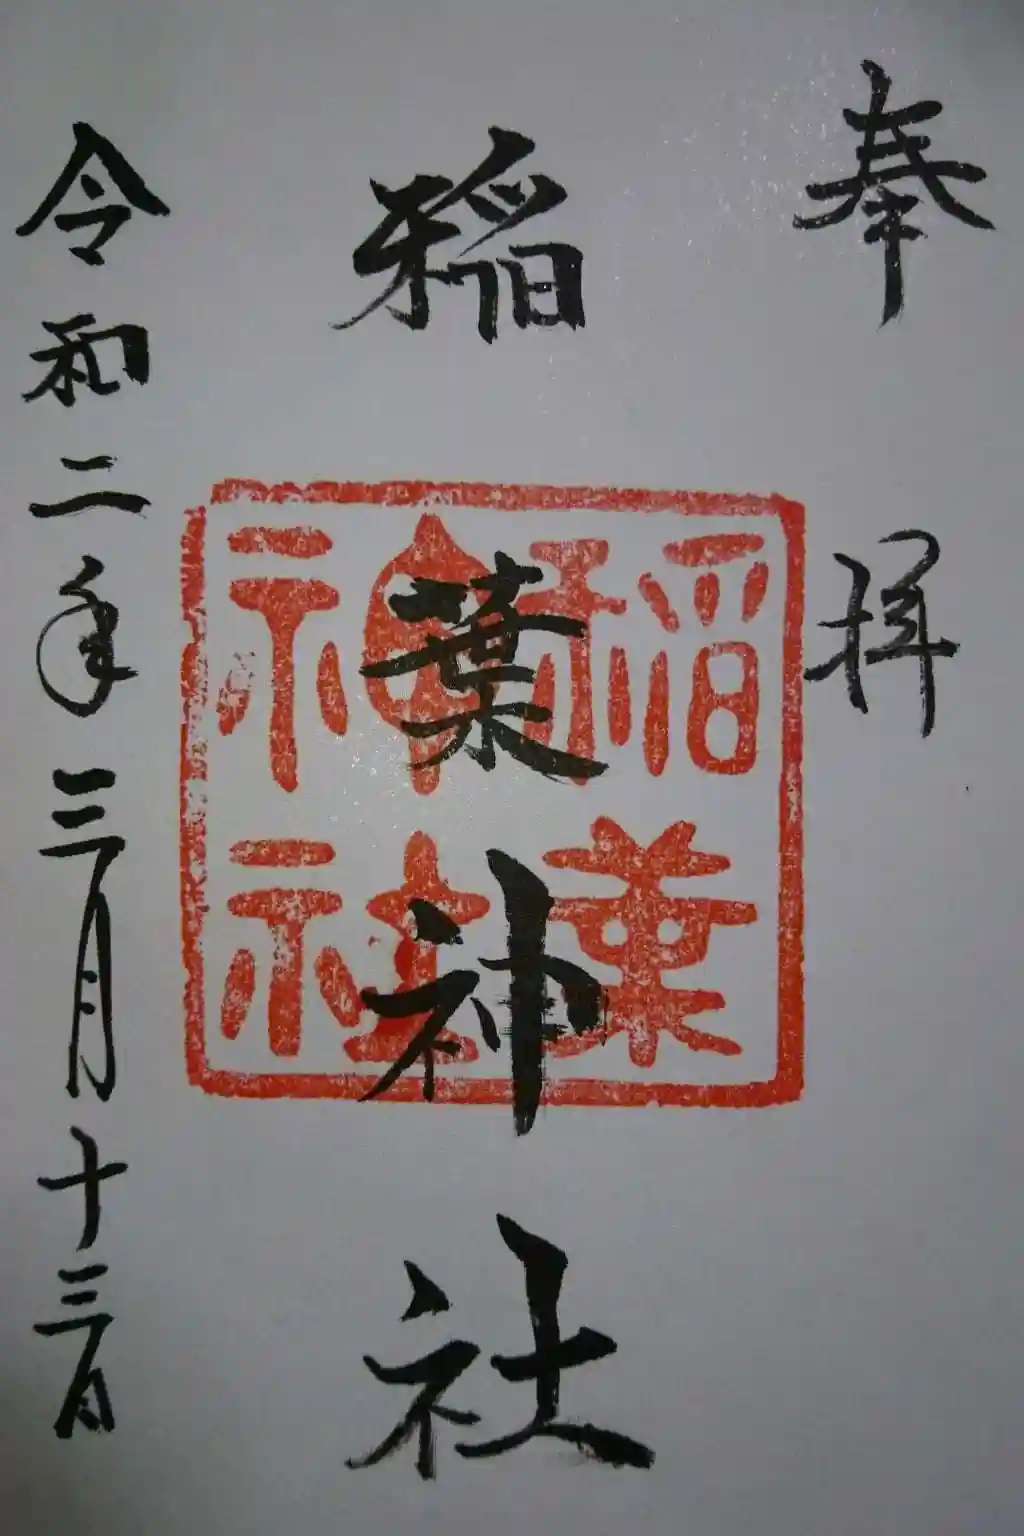 奉拝
稲葉神社
稲葉
神社
令和二年三月十三日